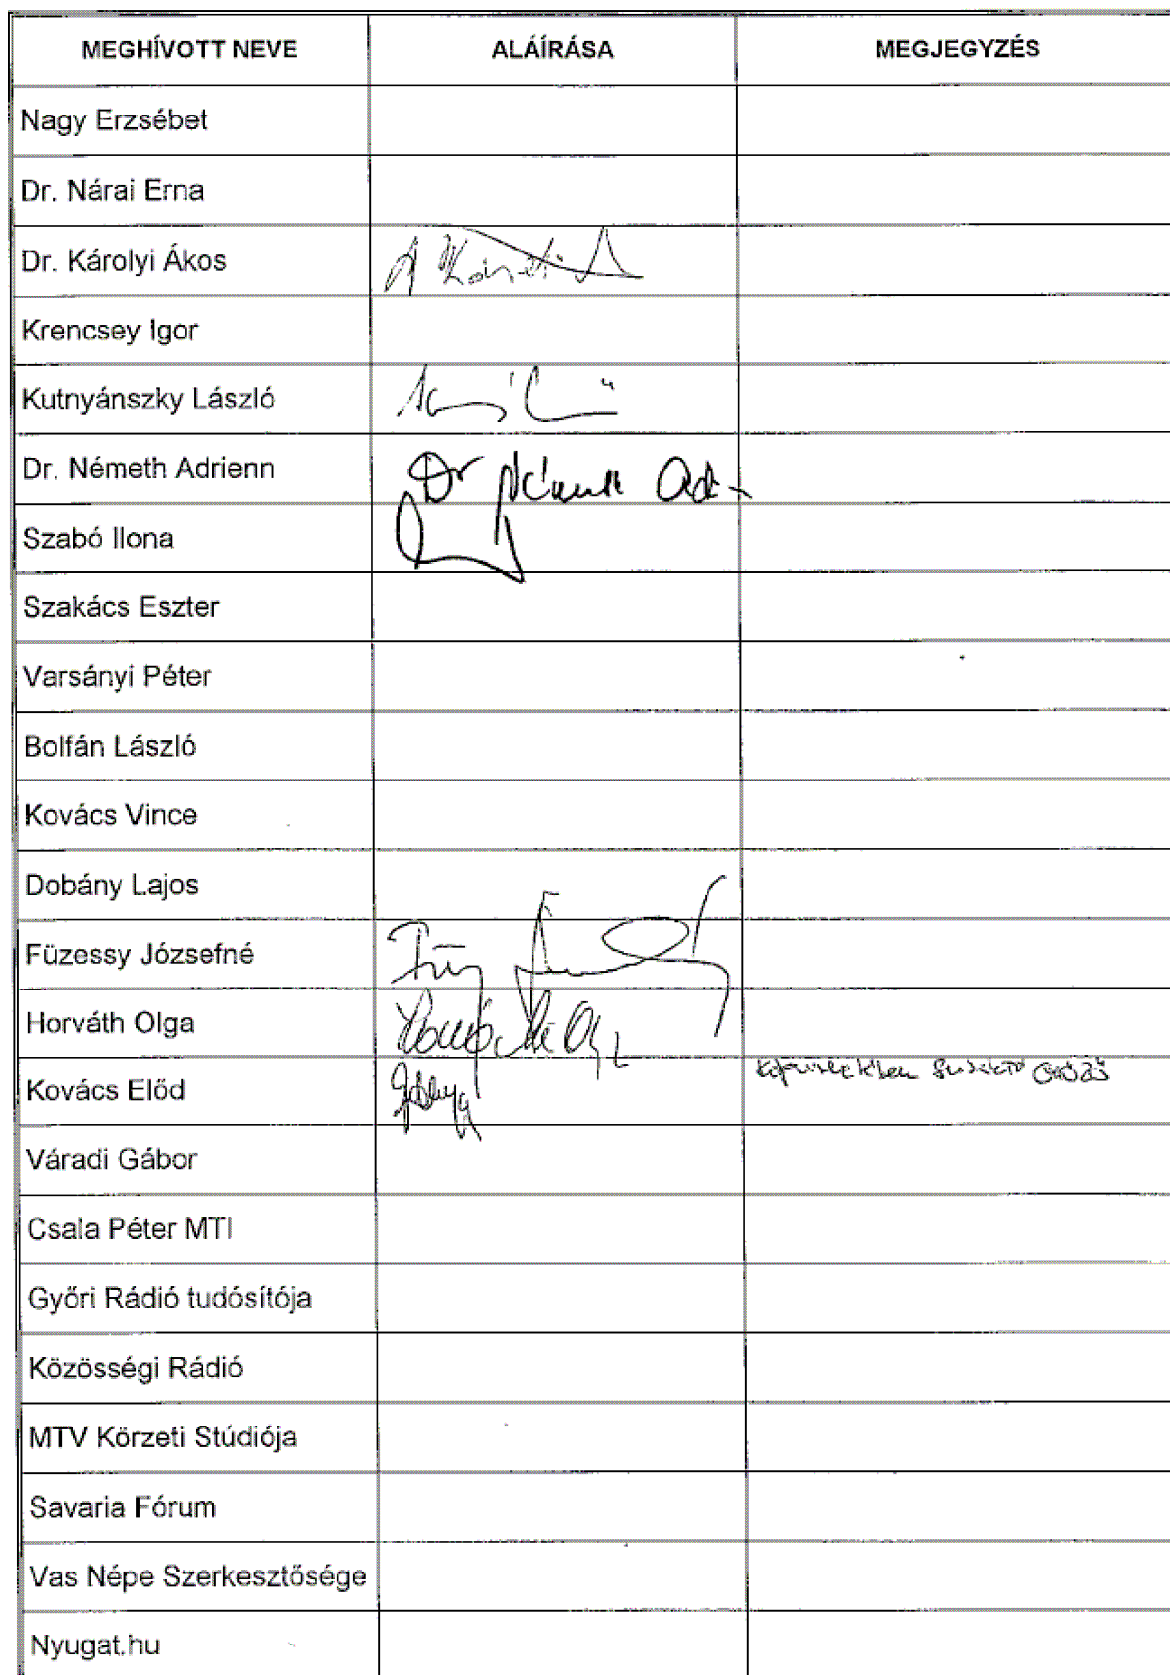 MEGHÍVOTT NEVE ALÁÍRÁSA MEGJEGYZÉS
Nagy Erzsébet
Dr. Nárai Erna
Dr. Károlyi Ákos
Krencsey Igor
Kutnyánszky László
Dr. Németh Adrienn Dr Németh Ad
Szabó Ilona
Szakács Eszter
Varsányi Péter
Bolfán László
Kovács Vince
Dobány Lajos
Füzessy Józsefné
Horváth Olga
Kovács Előd
Váradi Gábor
Csala Péter MTI
Győri Rádió tudósítója
Közösségi Rádió
MTV Körzeti Stúdiója
Savaria Fórum
Vas Népe Szerkesztősége
Nyugat.hu